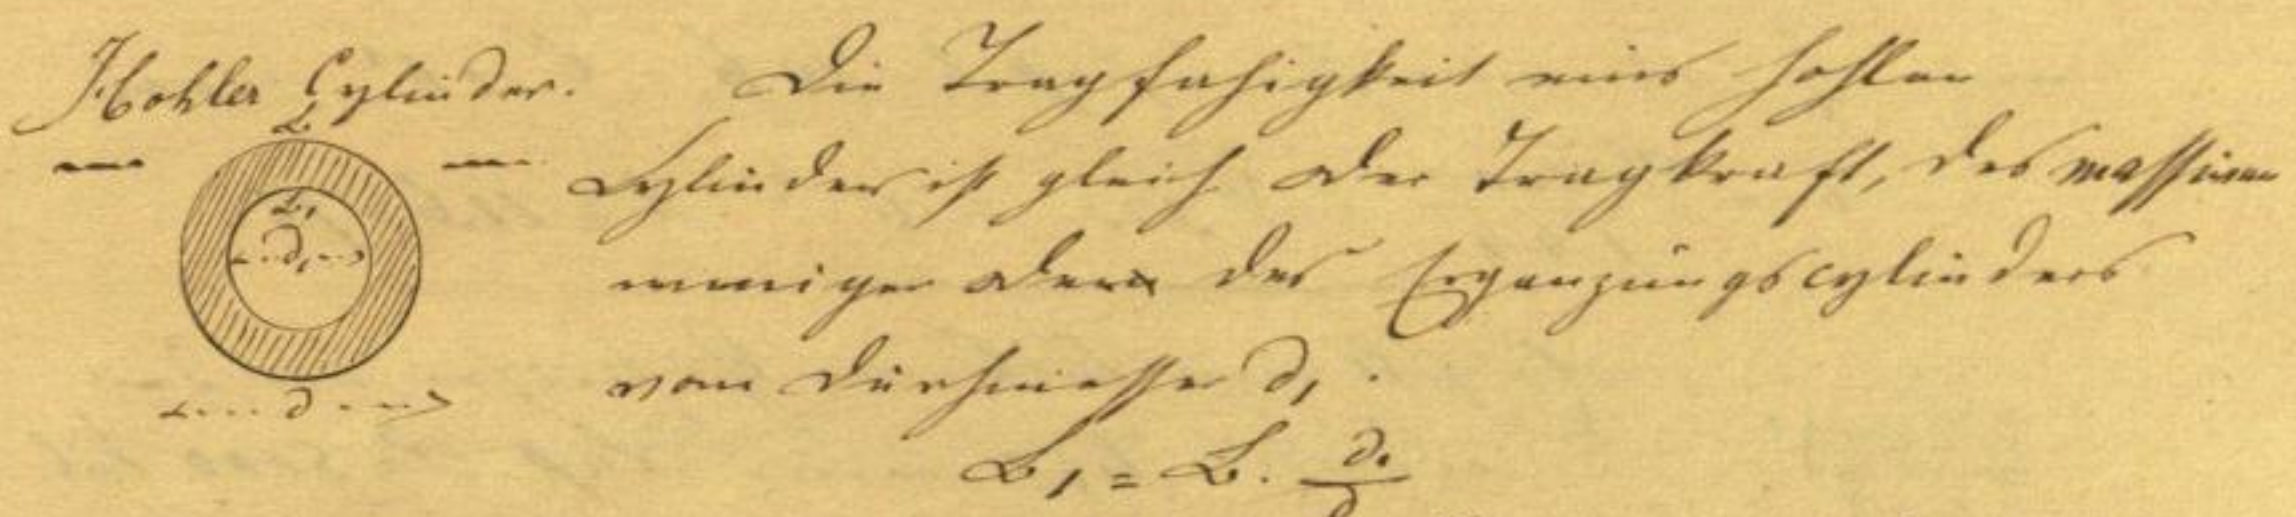 Hohler Cylinder.
Die Tragfähigkeit eines hohlen
Cylinders ist gleich der Tragkraft, des massiven
weniger der des Ergänzungscylinders
vom Durchmesser d,.
d,
d
B, = B. d, / d